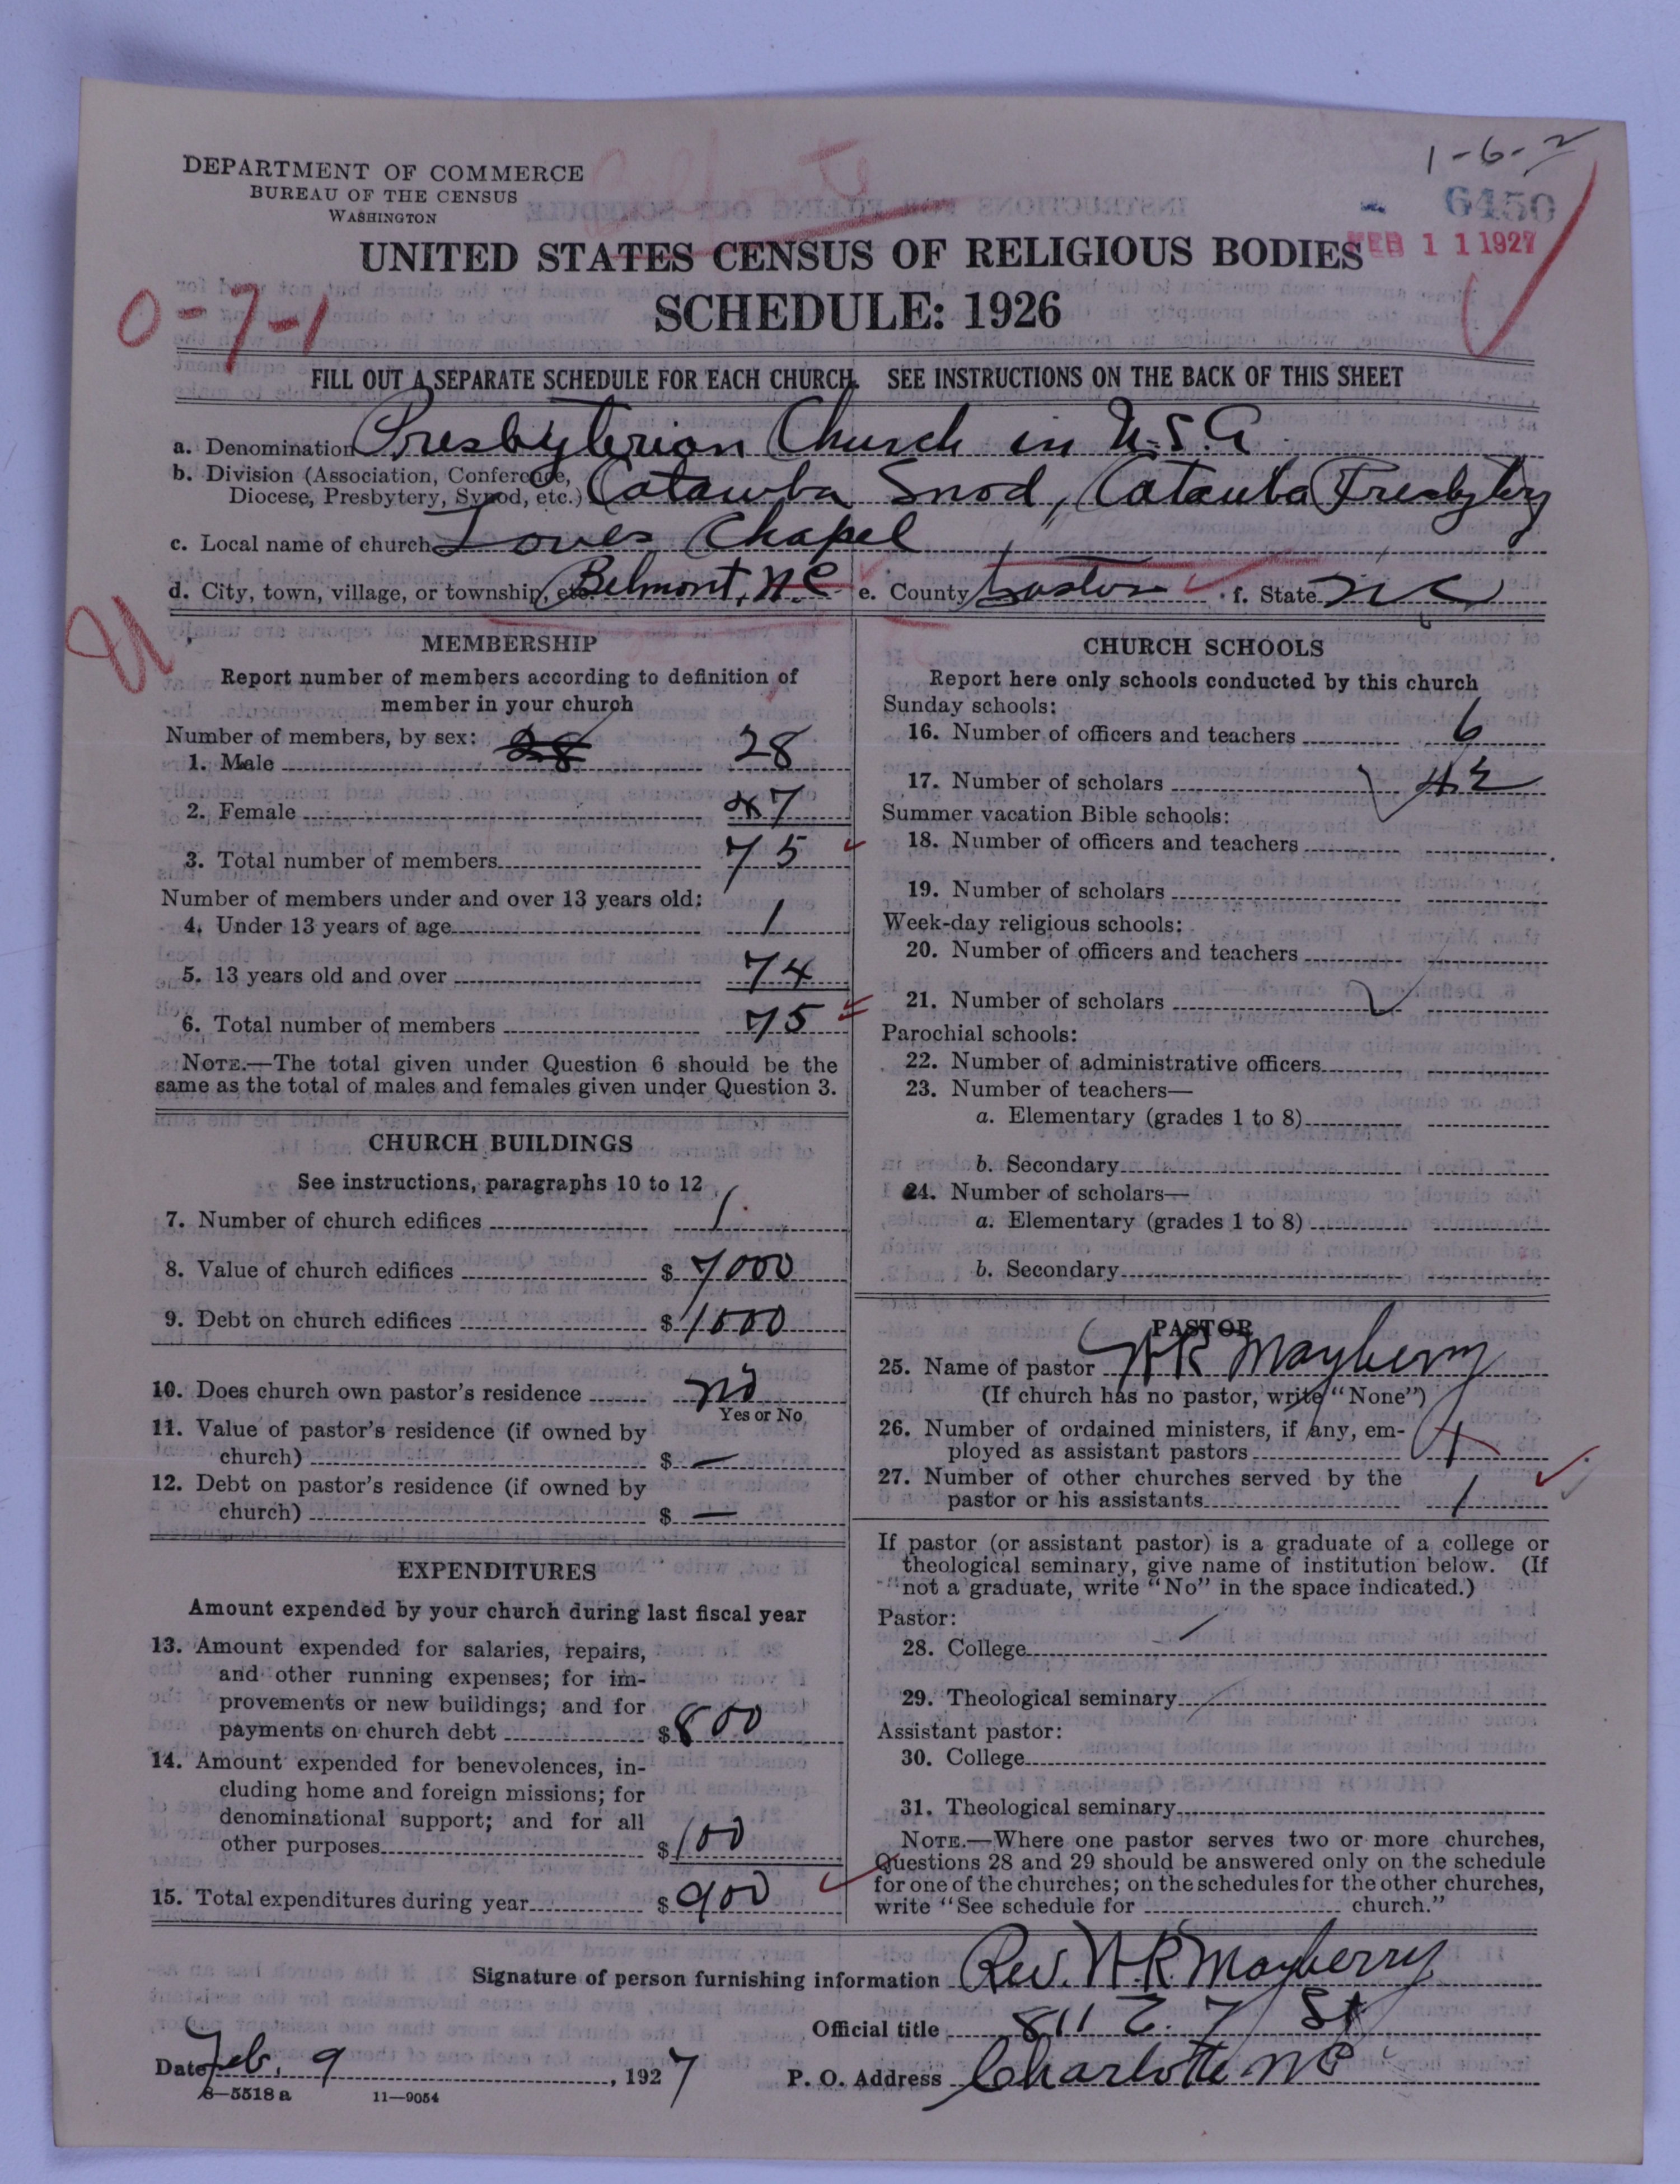 1-6-2
DEPARTMENT OF COMMERCE
BUREAU OF THE CENSUS
WASHINGTON
6450
FEB 11 1927
UNITED STATES CENSUS OF RELIGIOUS BODIES
SCHEDULE: 1926
0-7-1
FILL OUT A SEPARATE SCHEDULE FOR EACH CHURCH. SEE INSTRUCTIONS ON THE BACK OF THIS SHEET
a. Denomination Presbyterian Church in U.S.A.
b. Division (Association, Conference, Diocese, Presbytery, Synod, etc.) Catawba Snod, Catauba Presbytery
c. Local name of church Loves Chapel
d. City, town, village, or township, etc. Belmont, N.C. e. County Gaston f. State N C
MEMBERSHIP
Report number of members according to definition of
member in your church
Number of members, by sex: 28
1. Male 28
2. Female 47
3. Total number of members 75
Number of members under and over 13 years old:
4. Under 13 years of age 1
5. 13 years old and over 74
6. Total number of members 75
NOTE.—The total given under Question 6 should be the
same as the total of males and females given under Question 3.
CHURCH BUILDINGS
See instructions, paragraphs 10 to 12
7. Number of church edifices 1
8. Value of church edifices $ 7000
9. Debt on church edifices $ 1000
10. Does church own pastor's residence no
Yes or No
11. Value of pastor's residence (if owned by
church) $ —
12. Debt on pastor's residence (if owned by
church) $ —
EXPENDITURES
Amount expended by your church during last fiscal year
13. Amount expended for salaries, repairs,
and other running expenses; for im-
provements or new buildings; and for
payments on church debt $ 800
14. Amount expended for benevolences, in-
cluding home and foreign missions; for
denominational support; and for all
other purposes $ 100
15. Total expenditures during year $ 900
CHURCH SCHOOLS
Report here only schools conducted by this church
Sunday schools:
16. Number of officers and teachers 6
17. Number of scholars 42
Summer vacation Bible schools:
18. Number of officers and teachers
19. Number of scholars
Week-day religious schools:
20. Number of officers and teachers
21. Number of scholars
Parochial schools:
22. Number of administrative officers
23. Number of teachers—
a. Elementary (grades 1 to 8)
b. Secondary
24. Number of scholars—
a. Elementary (grades 1 to 8)
b. Secondary
PASTOR
25. Name of pastor W R Mayberry
(If church has no pastor, write "None")
26. Number of ordained ministers, if any, em-
ployed as assistant pastors
27. Number of other churches served by the
pastor or his assistants 1
If pastor (or assistant pastor) is a graduate of a college or
theological seminary, give name of institution below. (If
not a graduate, write "No" in the space indicated.)
Pastor:
28. College
29. Theological seminary
Assistant pastor:
30. College
31. Theological seminary
NOTE.—Where one pastor serves two or more churches,
Questions 28 and 29 should be answered only on the schedule
for one of the churches; on the schedules for the other churches,
write "See schedule for church."
Signature of person furnishing information Rev. W.R. Mayberry
Official title 811 E. 7 St
Date Feb. 9, 1927 P. O. Address Charlotte N C
8—5518 a 11—9054